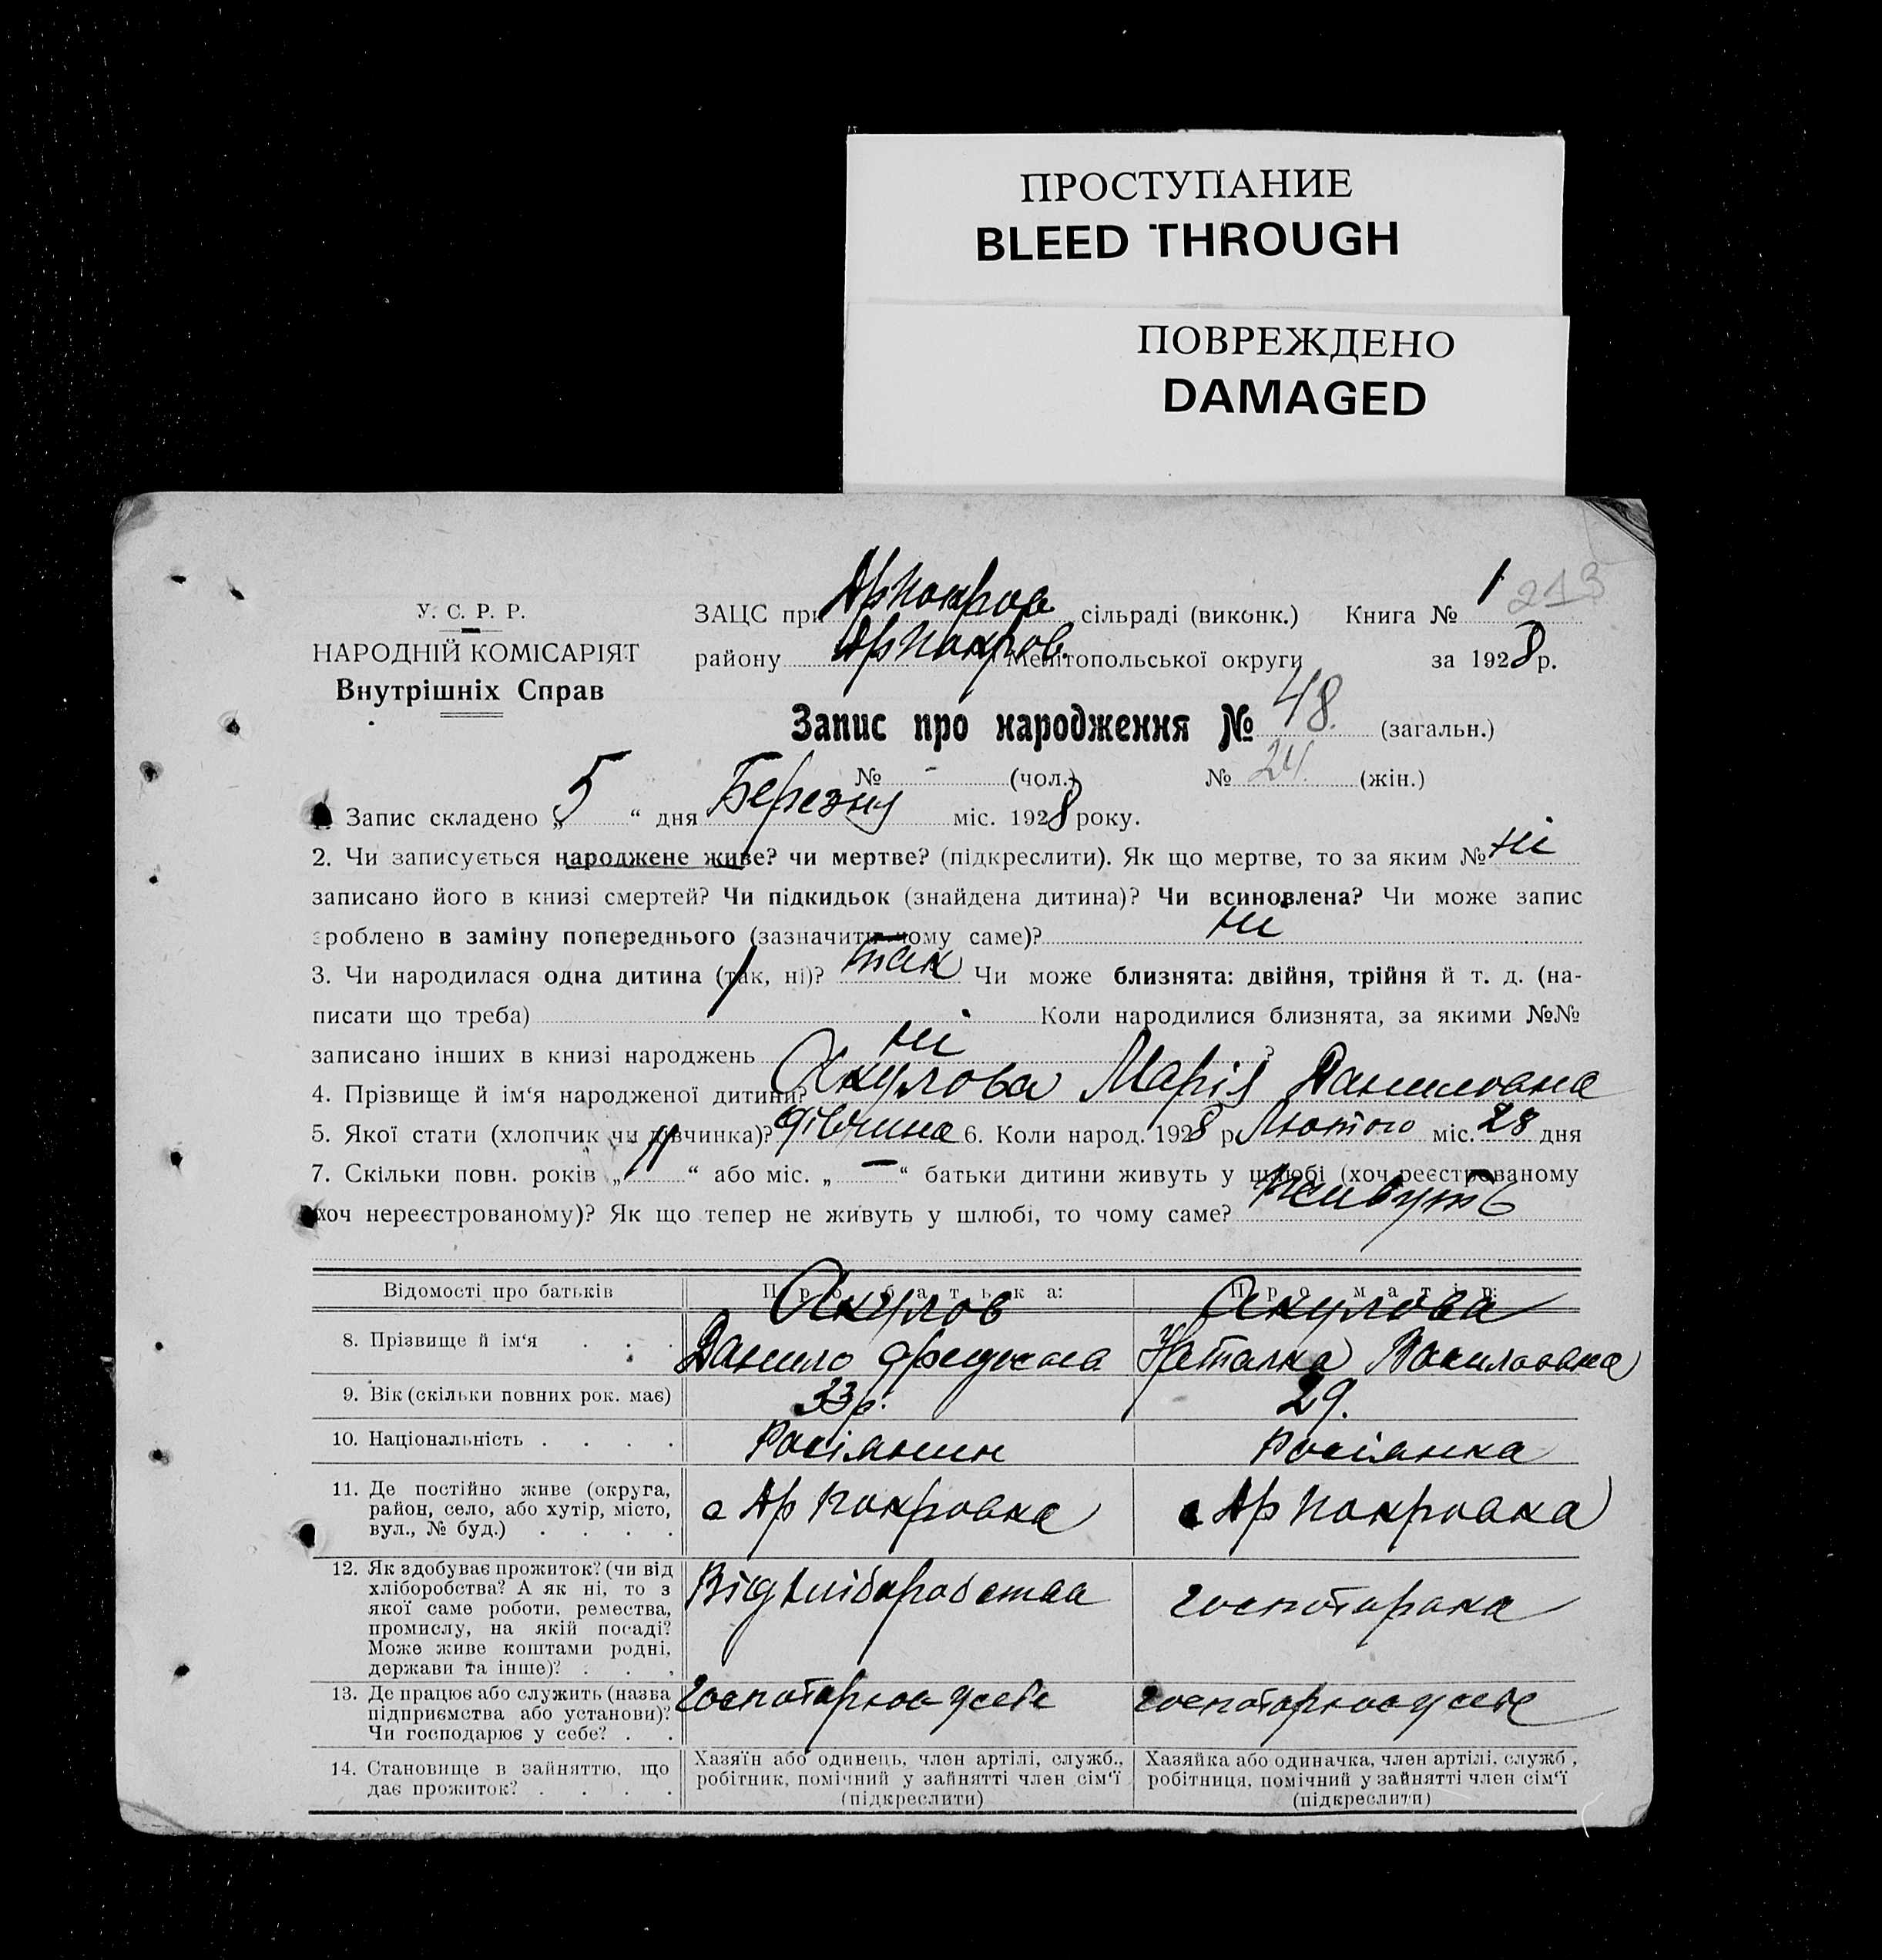 ПРОСТУПАНИЕ
BLEED THROUGH
ПОВРЕЖДЕНО
DAMAGED
213
У. С. Р. Р.
НАРОДНІЙ КОМІСАРІЯТ
Внутрішніх Справ
ЗАЦС при Ар Покров сільраді (виконк.) Книга № 1
району Ар Покров. Мелітопольської округи за 1928 р.
Запис про народження № 48. (загальн.)
№ - (чол.) № 24. (жін.)
Запис складено „ 5 “ дня Березня міс. 1928 року.
2. Чи записується народжене живе? чи мертве? (підкреслити). Як що мертве, то за яким № ні
записано його в книзі смертей? Чи підкидьок (знайдена дитина)? Чи всиновлена? Чи може запис
зроблено в заміну попереднього (зазначити чому саме)? ні
3. Чи народилася одна дитина (так, ні)? так Чи може близнята: двійня, трійня й т. д. (на-
писати що треба) Коли народилися близнята, за якими №№
записано інших в книзі народжень ні ?
4. Прізвище й ім‘я народженої дитини? Акулова Марія Даниловна
5. Якої стати (хлопчик чи дівчинка)? дівчина 6. Коли народ. 1928 р. Лютого міс. 28 дня
7. Скільки повн. років „ 11 “ або міс. „ — “ батьки дитини живуть у шлюбі (хоч реєстрованому
хоч нереєстрованому)? Як що тепер не живуть у шлюбі, то чому саме? живуть
Відомості про батьків Про батька: Про матір:
8. Прізвище й ім‘я Акулов Данило Акулова Наталка Василовна
9. Вік (скільки повних рок. має) 33 р. 29.
10. Національність Росіянин Росіянка
11. Де постійно живе (округа,
район, село, або хутір, місто,
вул., № буд.)
с Ар Покровка с Ар Покровка
12. Як здобуває прожиток? (чи від
хліборобства? А як ні, то з
якої саме роботи, ремества,
промислу, на якій посаді?
Може живе коштами родні,
держави та інше)?
Від хліборобства госпотарка
13. Де працює або служить (назва
підприємства або установи)?
Чи господарює у себе?
госпотарює у себе госпотарює у себе
14. Становище в зайняттю, що
дає прожиток?
Хазяїн або одинець, член артілі, служб.,
робітник, помічний у зайнятті член сім‘ї
(підкреслити)
Хазяйка або одиначка, член артілі, служб,
робітниця, помічний у зайнятті член сім‘ї
(підкреслити)